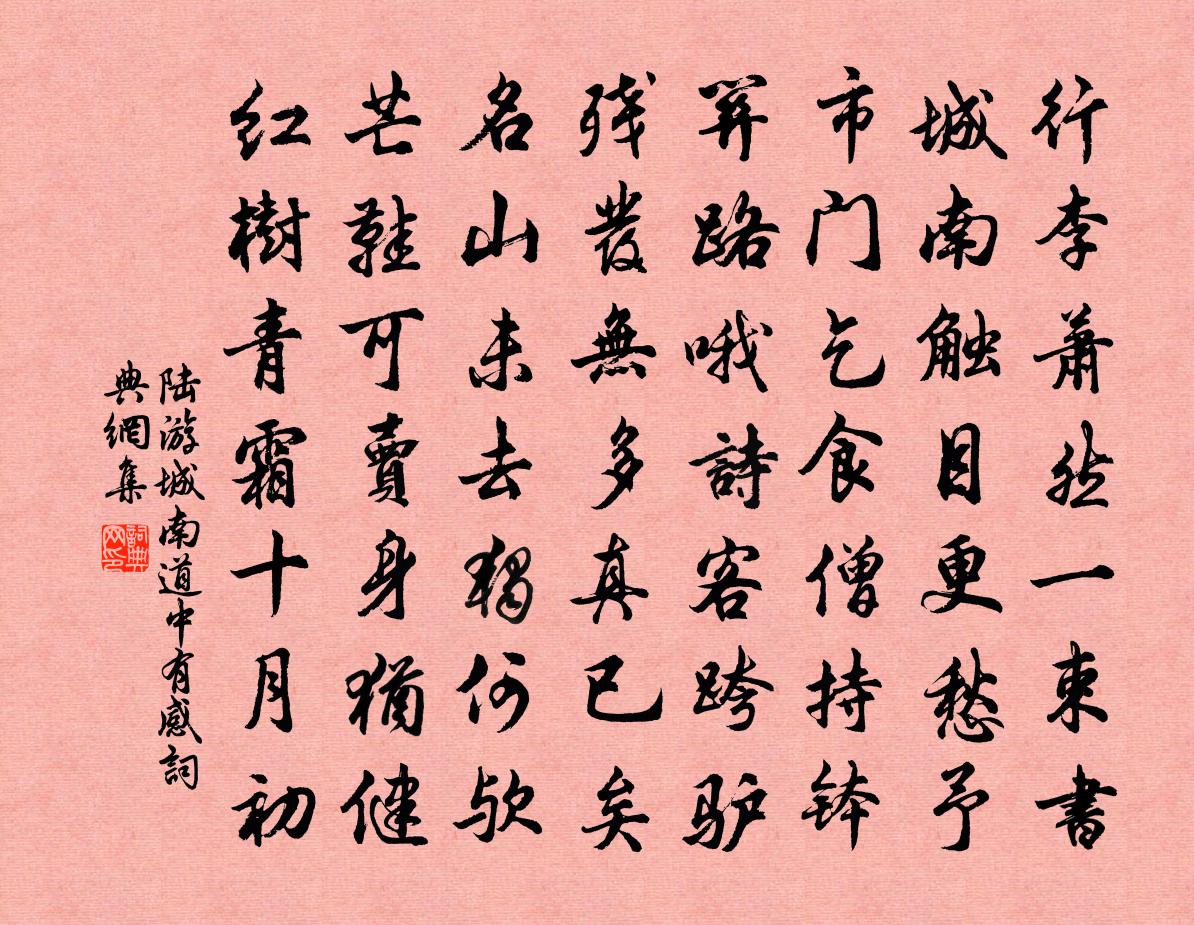 行李萧然一束書
城南触目更愁予
市门乞食僧持钵
野路哦詩客跨驴
残發無多真已矣
名山未去独何欤
芒鞋可賣身犹健
红樹青霜十月初
陆游城南道中有感詞
典網集
詞典网印